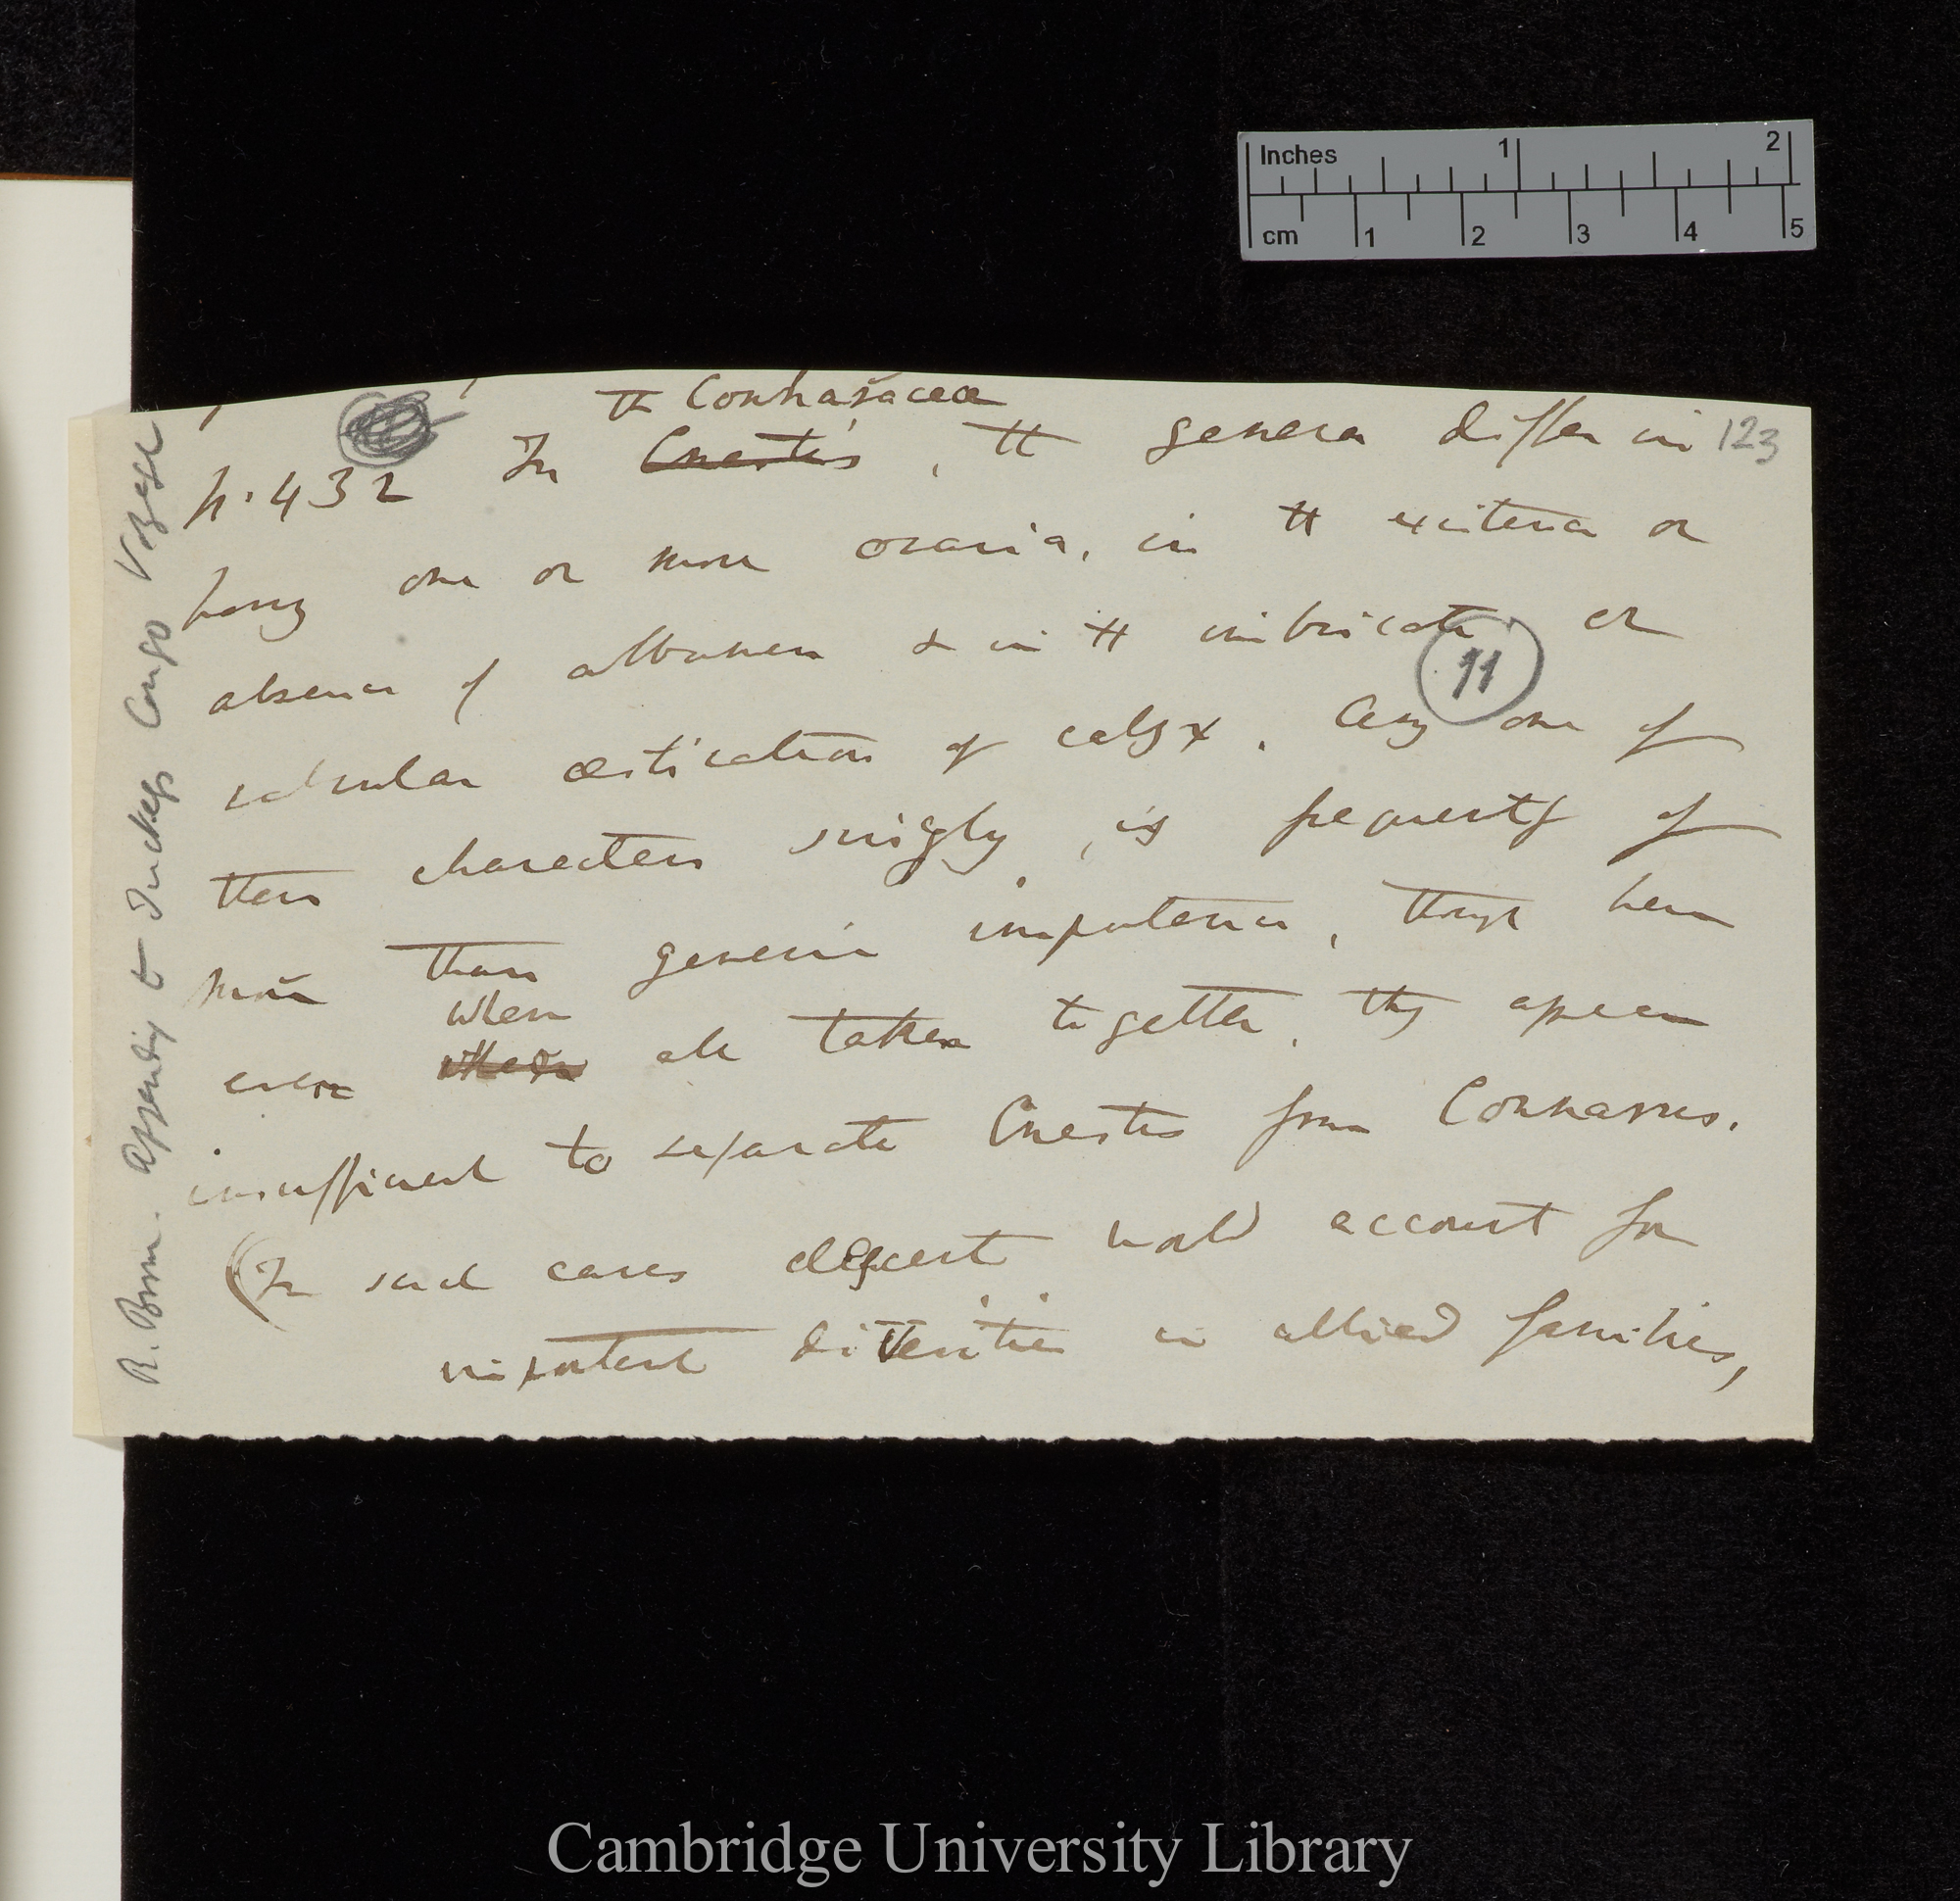 Inches 1 2
cm 1 2 3 4 5
the Connaraceæ
p. 432 In Cnestis, the genera differ in 123
having one or more ovaria, in the existence or
absence of albumen & in the imbricate or
11
valvular æstivation of calyx. Any one of
these characters singly, is frequently of
more than generic importance, though here
when
even all taken together, they appear
insufficient to separate Cnestis from Connarus.
(In such cases descent would account for
important differences in allied families,
R. Brown. Appendix to Tuckey's Congo Voyage
Cambridge University Library